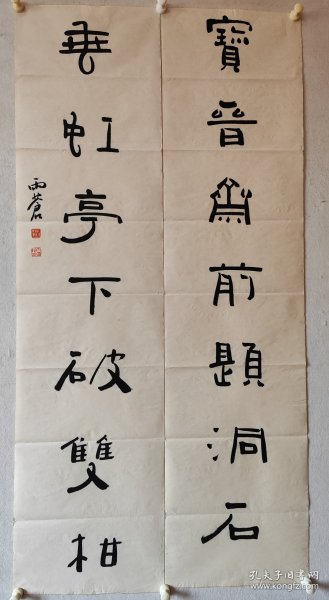 寶晉齋前題洞石
垂虹亭下破雙柑
雨蒼
孔夫子旧书网
www.kongfz.com